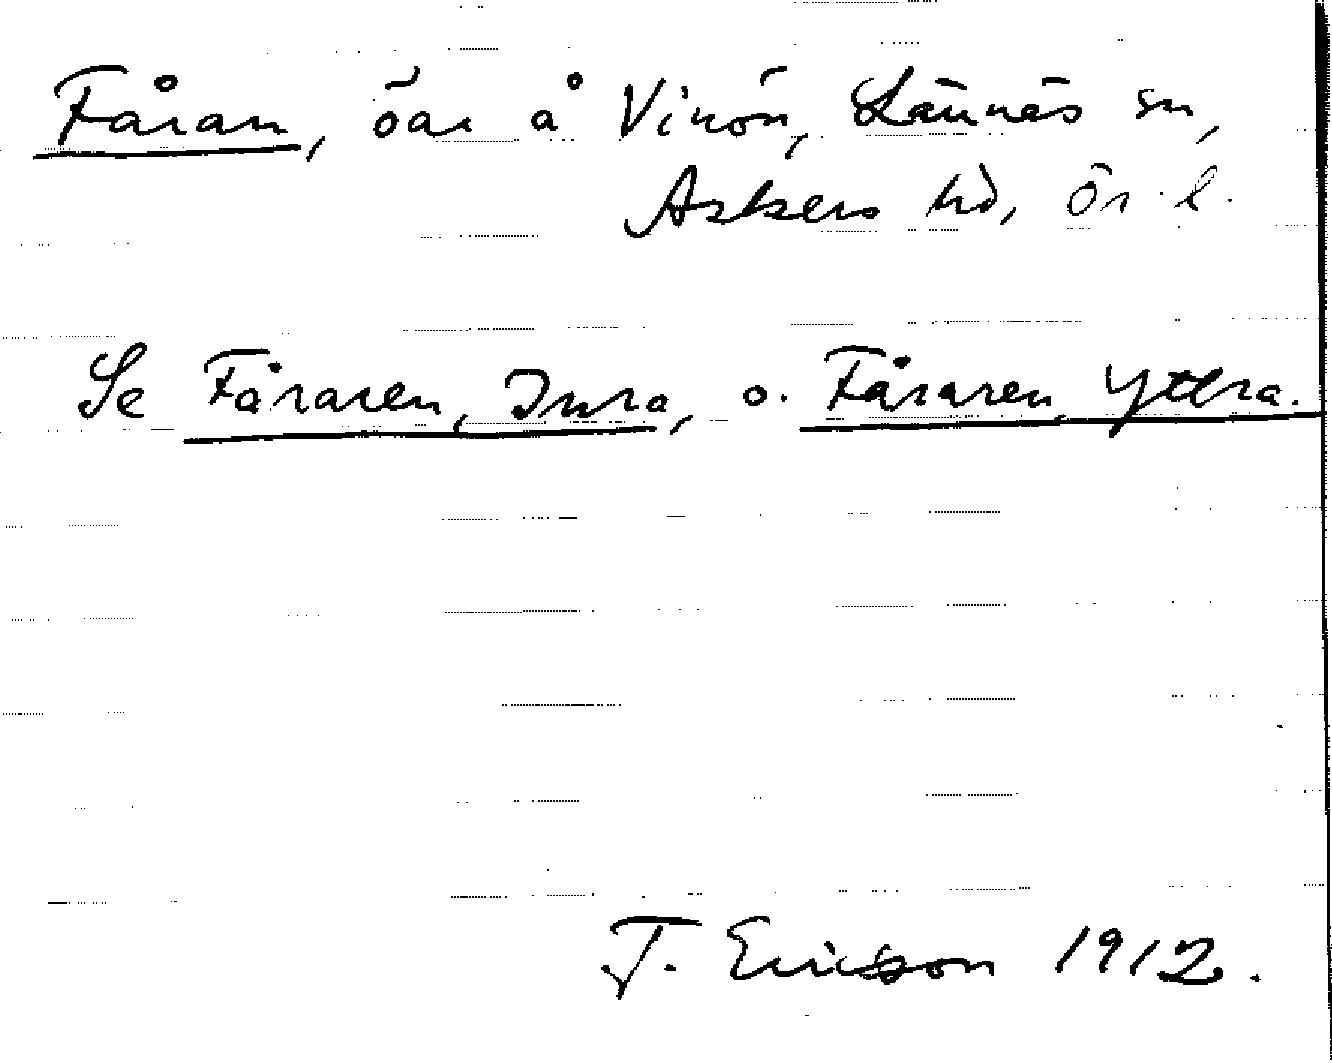 Fåran, öar å Vinön, Lännäs sn,
Askers hd, Ör. l.
Se Fåraren, Inra, o. Fåraren Yttra.
T. Ericsson 1912.